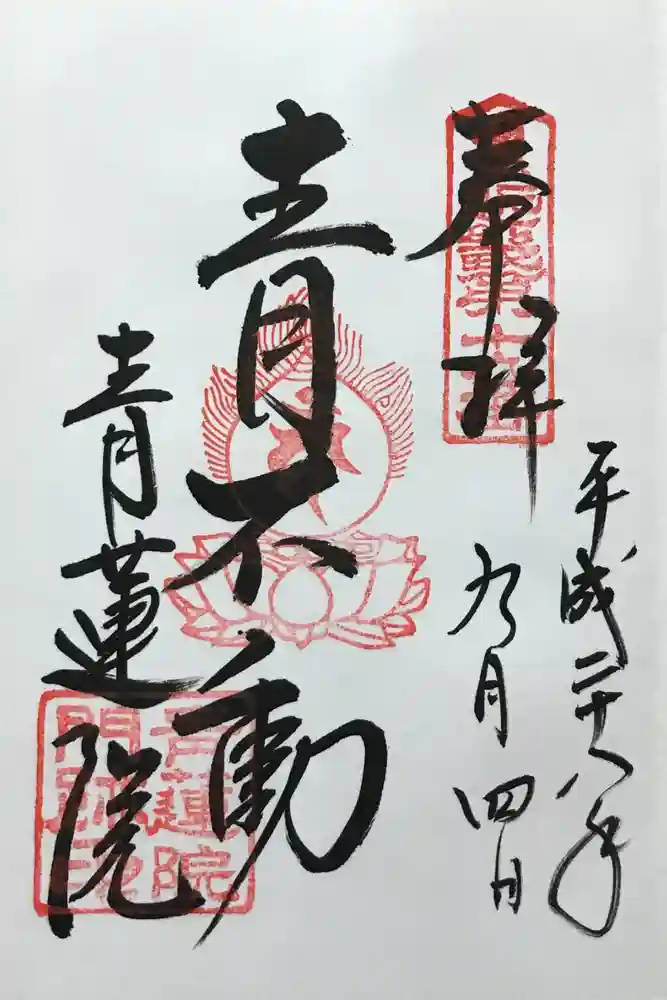 奉拝
平成二十八年
九月四日
青不動
青蓮院
青蓮院
門跡印